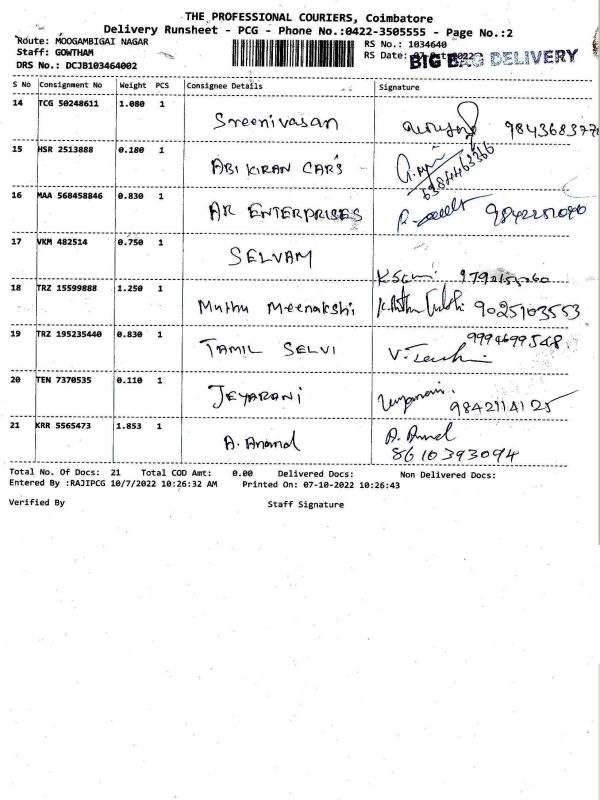 THE PROFESSIONAL COURIERS, Coimbatore
Delivery Runsheet - PCG - Phone No.:0422-3505555 - Page No.:2
Route: MOOGAMBIGAI NAGAR
Staff: GOWTHAM
DRS No.: DCJB103464002
RS No.: 1034640
RS Date:
BIG BAG DELIVERY
S No Consignment No Weight PCS Consignee Details Signature
14 TCG 50248611 1.080 1 Sreenivasan
15 HSR 2513888 0.180 1 ABI KIRAN CARS 6384463366
16 MAA 568458846 0.830 1 AR ENTERPRISES
17 VKM 482514 0.750 1 SELVAM
18 TRZ 15599888 1.250 1 Muthu Meenakshi 9025103553
19 TRZ 195235440 0.830 1 TAMIL SELVI
20 TEN 7370535 0.110 1 JEYARANI 9842114125
21 KRR 5565473 1.853 1 A. Anand
8610393094
Total No. Of Docs: 21 Total COD Amt: 0.00 Delivered Docs: Non Delivered Docs:
Entered By :RAJIPCG 10/7/2022 10:26:32 AM Printed On: 07-10-2022 10:26:43
Verified By Staff Signature